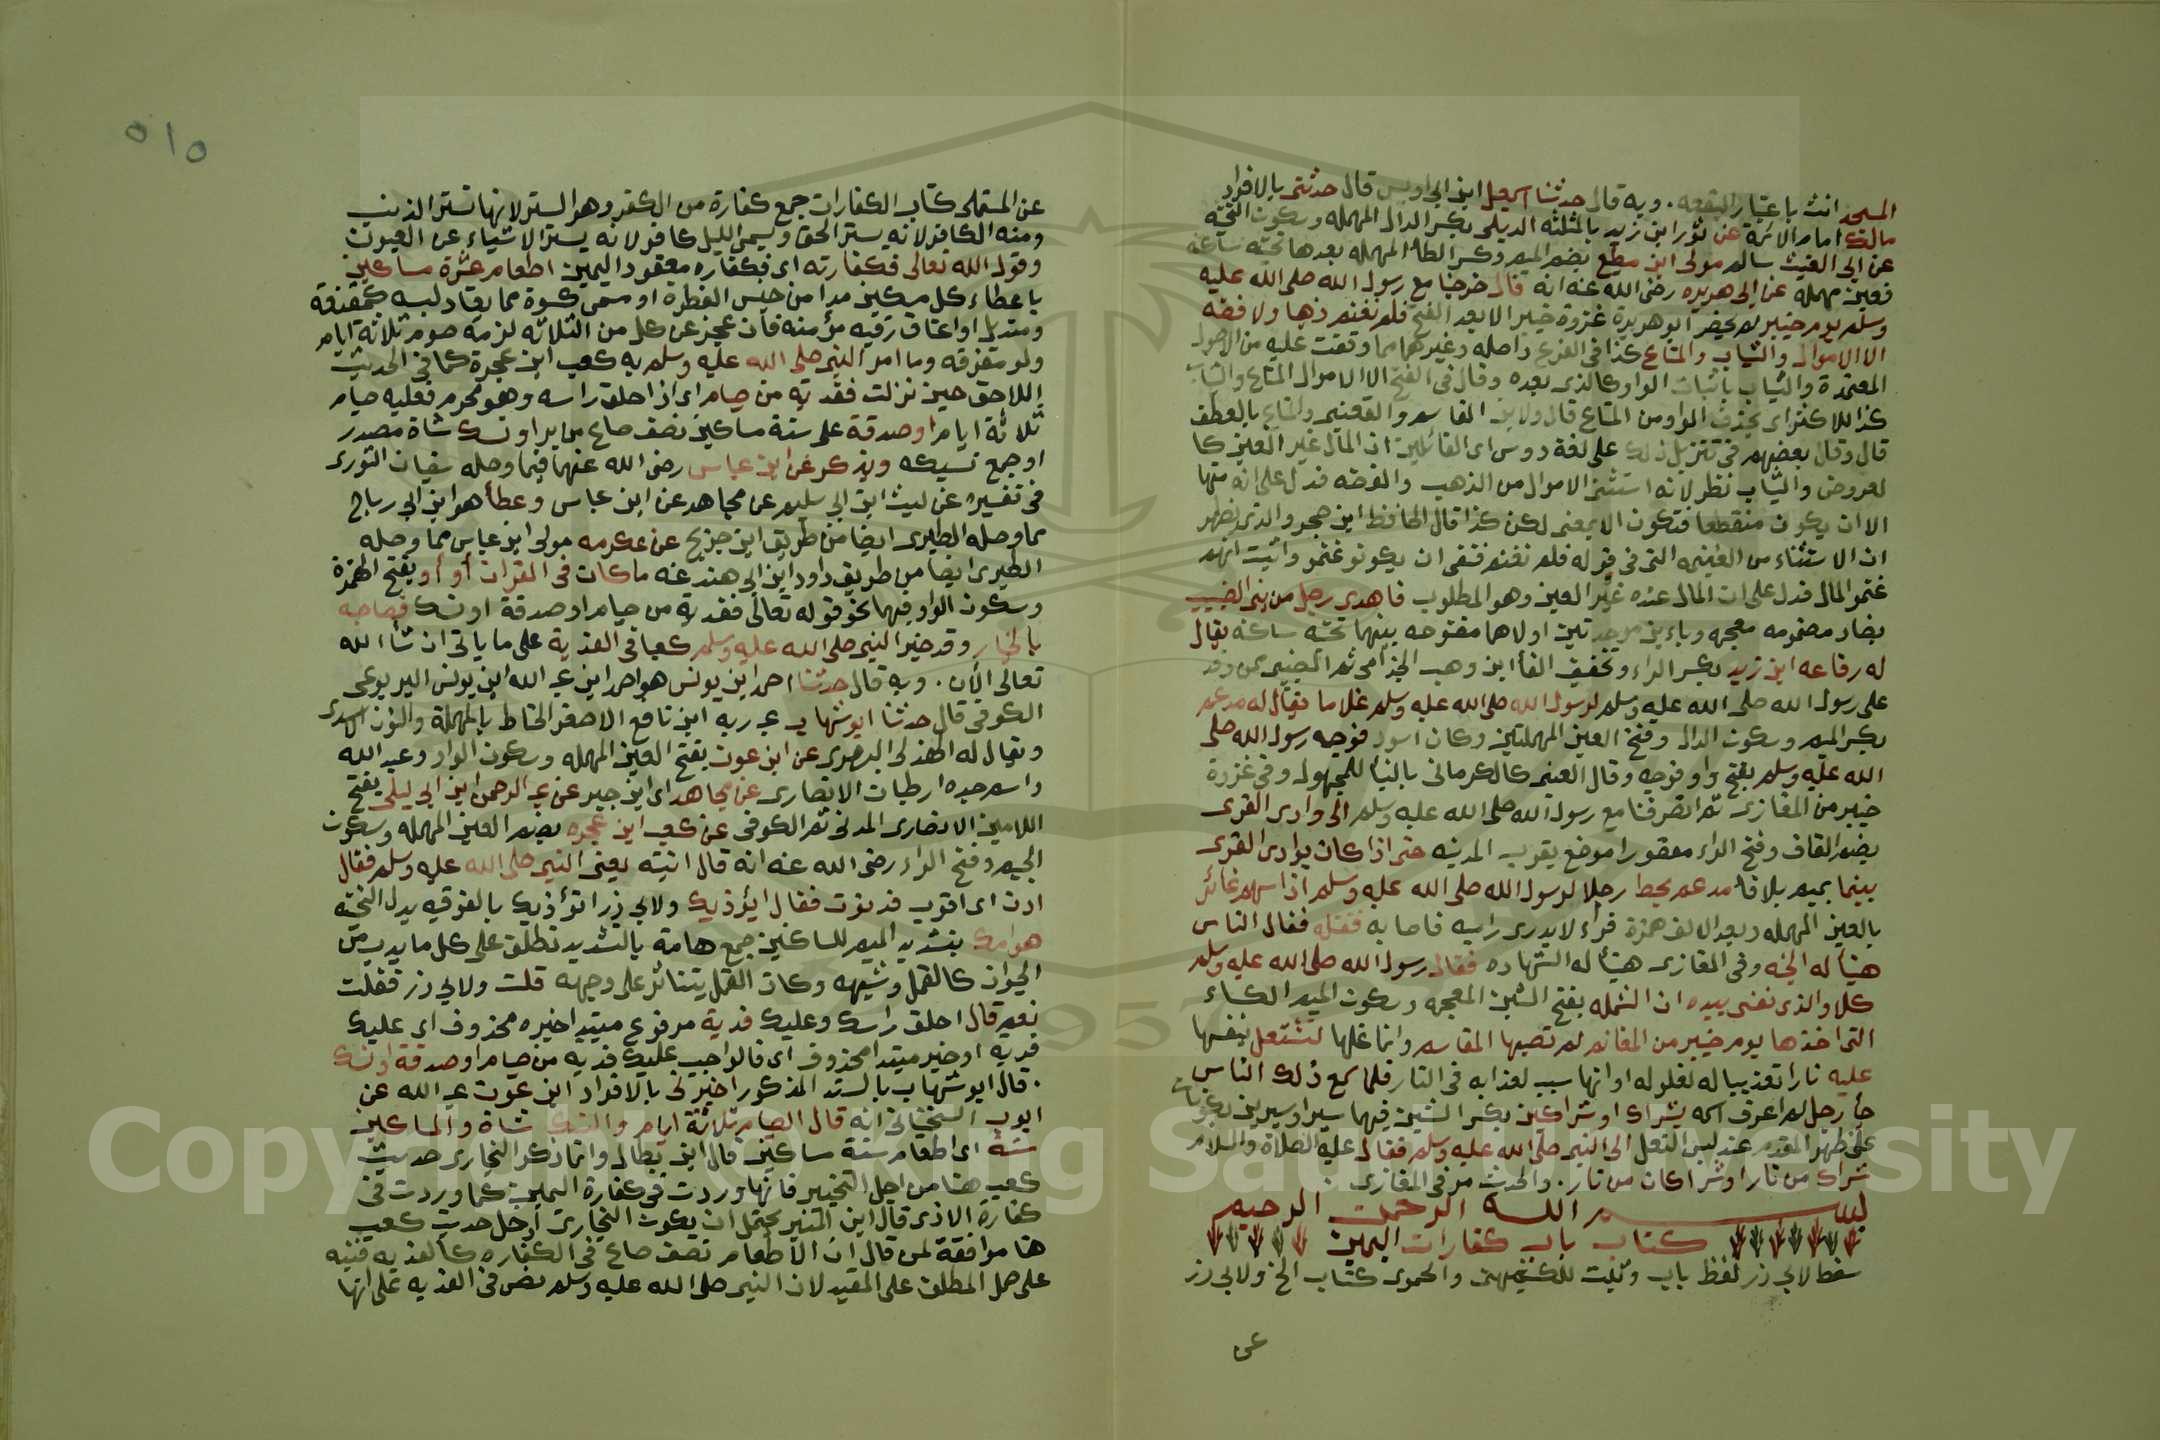 المسجد انث باعتبار البقعه. وبه قال حدثنا اسمعيل ابن ابي اويس قال حدثني بالافراد
مالك امام الائمة عن ثور ابن زيد بالمثلثه الديلي بكسر الدال المهمله وسكون التحتيه
عن ابي الغيث سالم مولى ابن مطيع بضم الميم وكسر الطا المهمله بعدها تحتيه ساكنه
فعين مهملة عن ابي هريره رضي الله عنه انه قال خرجنا مع رسول الله صلى الله عليه
وسلم يوم خيبر لم يحضر ابو هريرة غزوة خيبر الا بعد الفتح فلم نغنم ذهبا ولا فضه
الا الاموال والثياب والمتاع كذا في الفرع واصله وغيرهما مما وقفت عليه من الاصول
المعتمدة والثياب باثبات الواو كالذي بعده وقال في الفتح الا الاموال المتاع والثياب
كذا للاكثر اي بحذف الواو من المتاع قال ولابن القاسم والقعنبي والمتاع بالعطف
قال وقال بعضهم في تنزيل ذلك على لغة دوس اي القائلين ان المال غير العين كا
لعروض والثياب نظر لانه استثنى الاموال من الذهب والفضه فدل على انه منها
الا ان يكون منقطعا فتكون الا بمعنى لكن كذا قال الحافظ ابن حجر والذي يظهر
ان الاستثناء من الغنيمه التي في قوله فلم نغنم فنفى ان يكونو غنمو واثبت انهم
غنمو المال فدل على ان المال عنده غير العين وهو المطلوب فاهدى رجل من بني الضبيب
بضاد مضمومه معجمه وباءين موحدتين اولاهما مفتوحه بينهما تحتيه ساكنه يقال
له رفاعه ابن زيد بكسر الراء وتخفيف الفا ابن وهب الجذامي ثم الضبيبي ممن وفد
على رسول الله صلى الله عليه وسلم لرسول الله صلى الله عليه وسلم غلاما يقال له مدعم
بكسر الميم وسكون الدال وفتح العين المهملتين وكان اسود فوجه رسول الله صلى
الله عليه وسلم بفتح واو فوجه وقال العيني كالكرماني بالبنأ للمجهول وفي غزوة
خيبر من المغازي ثم انصرفنا مع رسول الله صلى الله عليه وسلم الى وادي القرى
بضم القاف وفتح الراء مقصورا موضع بقرب المدينه حتى اذا كان بوادي القرى
بينما بميم بلا فا مدعم يحط رحلا لرسول الله صلى الله عليه وسلم اذا سهم عائر
بالعين المهمله وبعد الالف همزة فراء لا يدري راميه فاصابه فقتله فقال الناس
هنيأ له الجنه وفي المغازي هنيأ له الشهاده فقال رسول الله صلى الله عليه وسلم
كلا والذي نفسي بيده ان الشمله بفتح الشين المعجمه وسكون الميم الكساء
التي اخذها يوم خيبر من المغانم لم تصبها المقاسم وانما غلها لتشتعل بنفسها
عليه نارا تعذيبا له لغلوله او انها سبب لعذابه في النار فلما سمع ذلك الناس
جأ رجل لم اعرف اسمه بشراك او شراكين بكسر الشين فيهما سير او سيرين يكونان
على ظهر القدم عند لبس النعل الى النبي صلى الله عليه وسلم فقال عليه الصلاة والسلام
شراك من نار او شراكان من نار. والحديث مر في المغازي.
بسم الله الرحمن الرحيم
كتاب باب كفارات اليمين
سقط لابي ذر لفظ باب وثبت للكشميهني والحموي كتاب الخ ولابي ذر
عن
٥١٥
عن المستملي كتاب الكفارات جمع كفارة من الكفر وهو الستر لانها تستر الذنب
ومنه الكافر لانه يستر الحق ويسمى الليل كافر لانه يستر الاشياء عن العيون
وقول الله تعالى فكفارته اي فكفاره معقود اليمين اطعام عشرة مساكين
باعطاء كل مسكين مدا من جنس الفطرة او مسمى كسوة مما يعتاد لبسه كمقنعة
ومنديل او اعتاق رقبه مؤمنه فان عجز عن كل من الثلاثه لزمه صوم ثلاثة ايام
ولو متفرقه وما امر النبي صلى الله عليه وسلم به كعب ابن عجرة كما في الحديث
اللاحق حين نزلت ففدية من صيام اي اذا حلق راسه وهو محرم فعليه صيام
ثلاثة ايام او صدقة على ستة مساكين نصف صاع من بر او نسك شاة مصدر
او جمع نسيكه ويذكر عن ابن عباس رضي الله عنهما فيما وصله سفيان الثوري
في تفسيره عن ليث ابن ابي سليم عن مجاهد عن ابن عباس وعطأ هو ابن ابي رباح
مما وصله الطبري ايضا من طريق ابن جريج عن عكرمه مولى ابن عباس مما وصله
الطبري ايضا من طريق داود ابن ابي هند عنه ما كان في القران أو أو بفتح الهمزة
وسكون الواو فيهما نحو قوله تعالى ففدية من صيام او صدقة او نسك فصاحبه
بالخيار وقد خير النبي صلى الله عليه وسلم كعبا في الفدية على ما ياتي ان شأ الله
تعالى الآن. وبه قال حدثنا احمد ابن يونس هو احمد ابن عبد الله ابن يونس اليربوعي
الكوفي قال حدثنا ابو شهاب عبد ربه ابن نافع الاصغر الحناط بالمهملة والنون الاسدي
ويقال له الهذلي البصري عن ابن عون بفتح العين المهمله وسكون الواو وعبد الله
واسم جده ارطبان الانصاري عن مجاهد اي ابن جبر عن عبد الرحمن ابن ابي ليلى بفتح
اللامين الانصاري المدني ثم الكوفي عن كعب ابن عجره بضم العين المهمله وسكون
الجيم وفتح الراء رضي الله عنه انه قال اتيته يعني النبي صلى الله عليه وسلم فقال
ادن اي اقرب فدنوت فقال ايؤذيك ولابي ذر اتؤذيك بالفوقيه بدل التحتيه
هوامك بتشديد الميم للساكنين جمع هامة بالتشديد تطلق على كل ما يدب من
الحيوان كالقمل وشبهه وكان القمل يتناثر على وجهه قلت ولابي ذر فقلت
نعم قال احلق راسك وعليك فدية مرفوع مبتدا خبره محذوف اي عليك
فدية او خبر مبتدا محذوف اي فالواجب عليك فديه من صيام او صدقة او نسك
. قال ابو شهاب بالسند المذكور اخبرني بالافراد ابن عون عبد الله عن
ايوب السختياني انه قال الصيام ثلاثة ايام والنسك شاة والمساكين
ستة اي اطعام ستة مساكين قال ابن بطال وانما ذكر البخاري حديث
كعب هنا من اجل التخيير فانها وردت في كفارة اليمين كما وردت في
كفارة الاذى قال ابن المنير يحتمل ان يكون البخاري ادخل حديث كعب
هنا موافقة لمن قال ان الاطعام نصف صاع في الكفاره كالفديه فنبه
على حمل المطلق على المقيد لان النبي صلى الله عليه وسلم نص في الفديه على انها
Copyright © King Saud University
1957